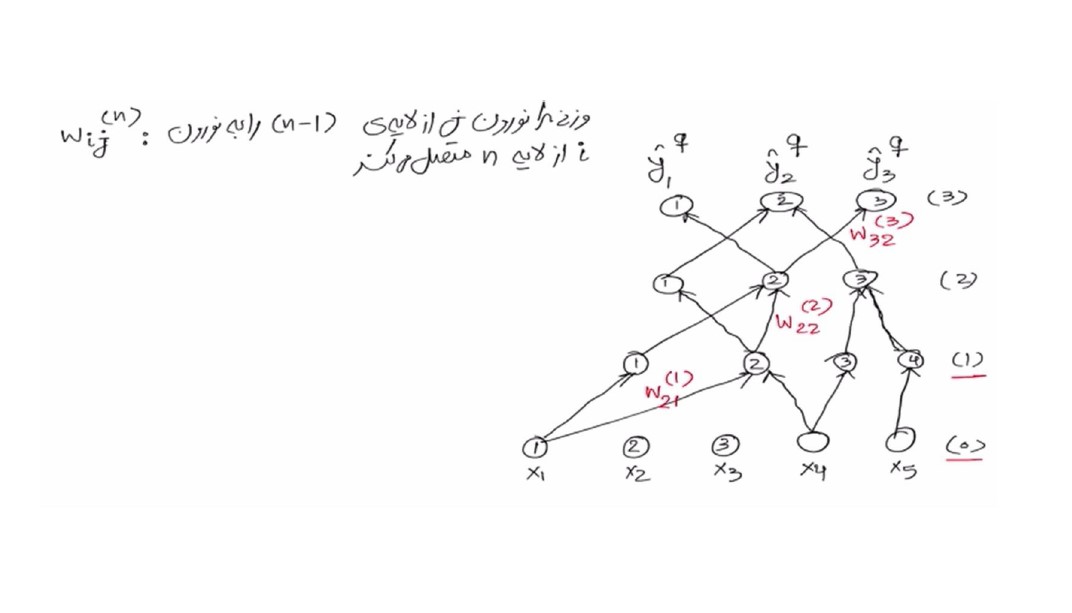 w_ij^(n) : وزنی را نورون j از لایه‌ی (n-1) را به نورون
i از لایه n متصل می‌کند
ŷ₁^q ŷ₂^q ŷ₃^q
1 2 3 (3)
w_32^(3)
1 2 3 (2)
w_22^(2)
1 2 3 4 (1)
w_21^(1)
1 2 3 (0)
x1 x2 x3 x4 x5